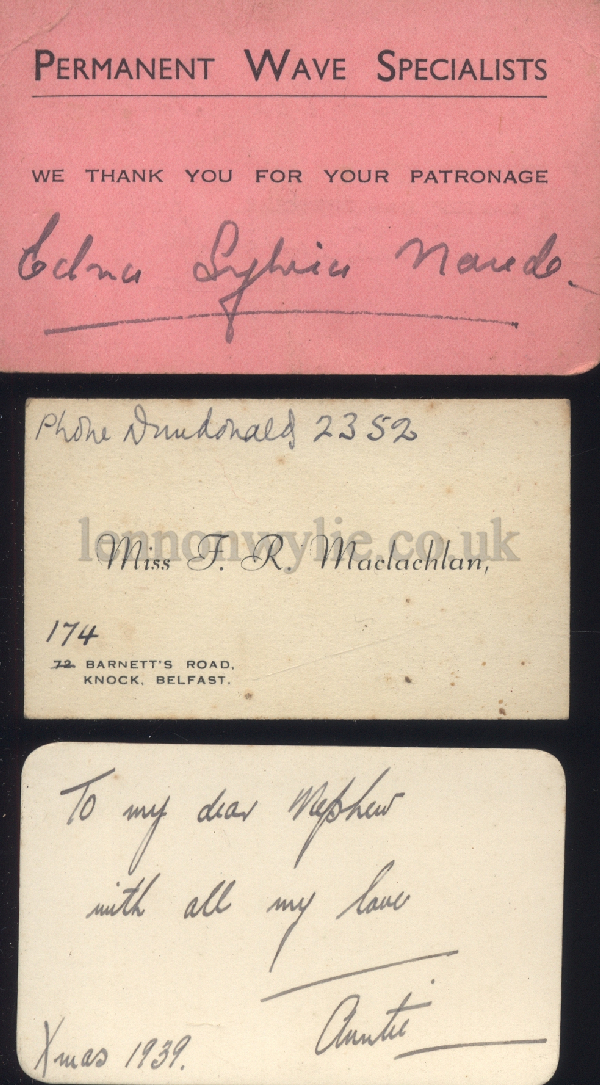 PERMANENT WAVE SPECIALISTS
WE THANK YOU FOR YOUR PATRONAGE
Edna Sylvia Naude
Phone Dundonald 2352
lennonwylie.co.uk
Miss F. R. Maclachlan,
174
72 BARNETT'S ROAD,
KNOCK, BELFAST.
To my dear Nephew
with all my love
Auntie
Xmas 1939.